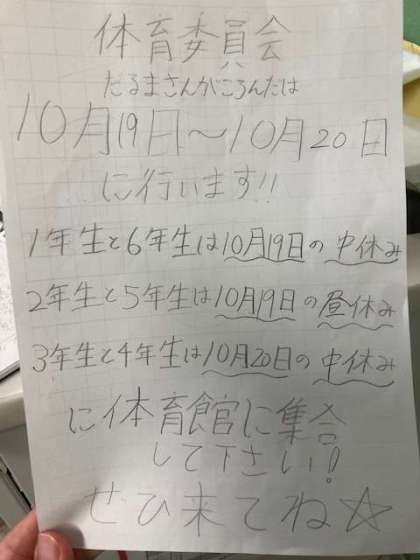 体育委員会
だるまさんがころんだは
10月19日〜10月20日
に行います!!
1年生と6年生は10月19日の中休み
2年生と5年生は10月19日の昼休み
3年生と4年生は10月20日の中休み
に体育館に集合
して下さい!
ぜひ来てね☆